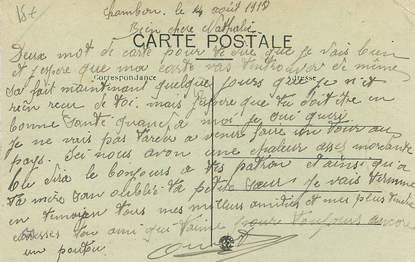 Chambon. le 14 août 1918
Bien chere Nathalie
CARTE POSTALE
Correspondance
Adresse
Deux mot de carte pour te dire que je vais bien
et j'espere que ma carte vas t'en trouver de même
sa fait maintenant quelque jours que je n'et
rein recu de toi, mais j'espere que tu doit etre en
bonne santé quand a moi je sui guéri
je ne vais pas tarder a venir faire un tour au
pays. Ici nous avon une chaleur assez mordante
Tu dira le bonjour a tes patron et ainsi qu'a
ta mère san oublié ta petite sœur. Je vais terminé
en t'envoyan tous mes meilleurs amitiés et mes plus tendre
caresses ton ami qui t'aime pour toujours encore
un poutou.